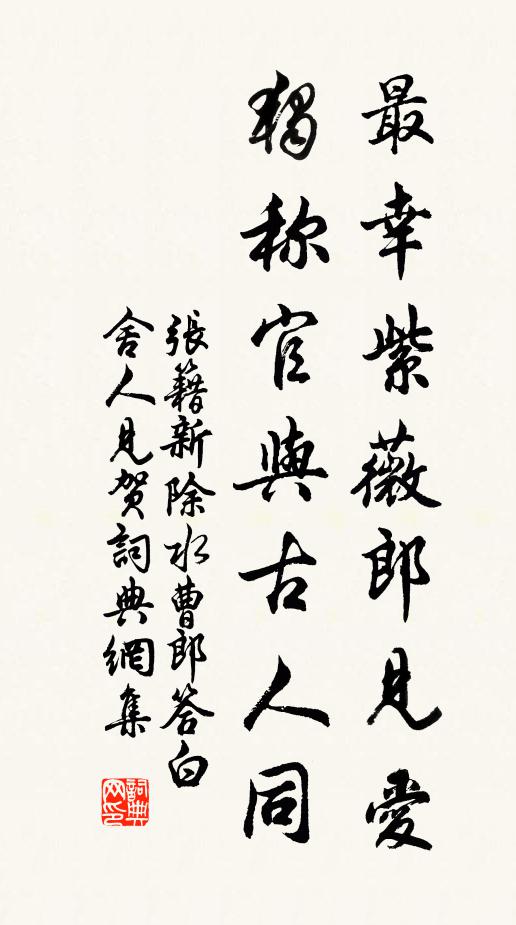 最幸紫薇郎見愛
獨称官與古人同
張籍新除水曹郎答白
舍人見賀詞典網集
詞典
网印